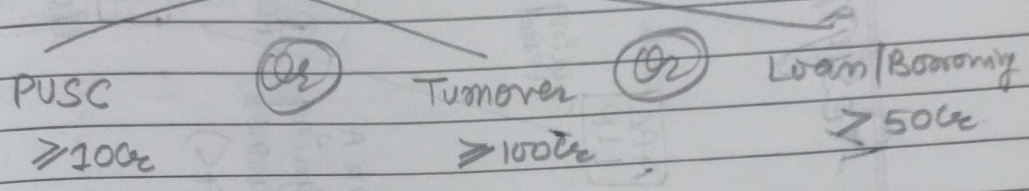 PUSC Or Turnover Or Loan/Borrowing
≥10Cr ≥100Cr ≥50Cr